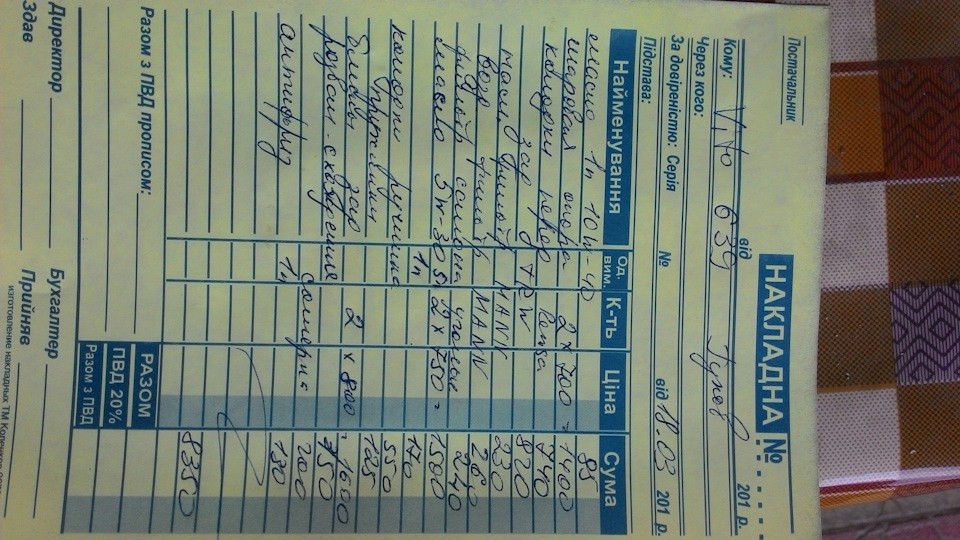 Постачальник
НАКЛАДНА №
від 201 р.
Кому: Vito 639
Через кого:
За довіреністю: Серія № від 18.03 201 р.
Підстава:
Найменування Од. вим. К-ть Ціна Сума
масло 1л 10w-40 85
шаровая опора 2 x 700 = 1400
колодки перед 740
зад TRW 820
масл. фильтр MANN 230
возд. фильтр MANN 260
фильтр салона угольн 240
масло 5w-30 2 x 750 = 1500
1л 170
колодки ручника 550
зад 2 x 800 = 1600
750
200
антифриз 1л 130
8350
РАЗОМ
ПВД 20%
Разом з ПВД
Разом з ПВД прописом:
Директор Бухгалтер
Здав Прийняв
изготовление накладных ТМ